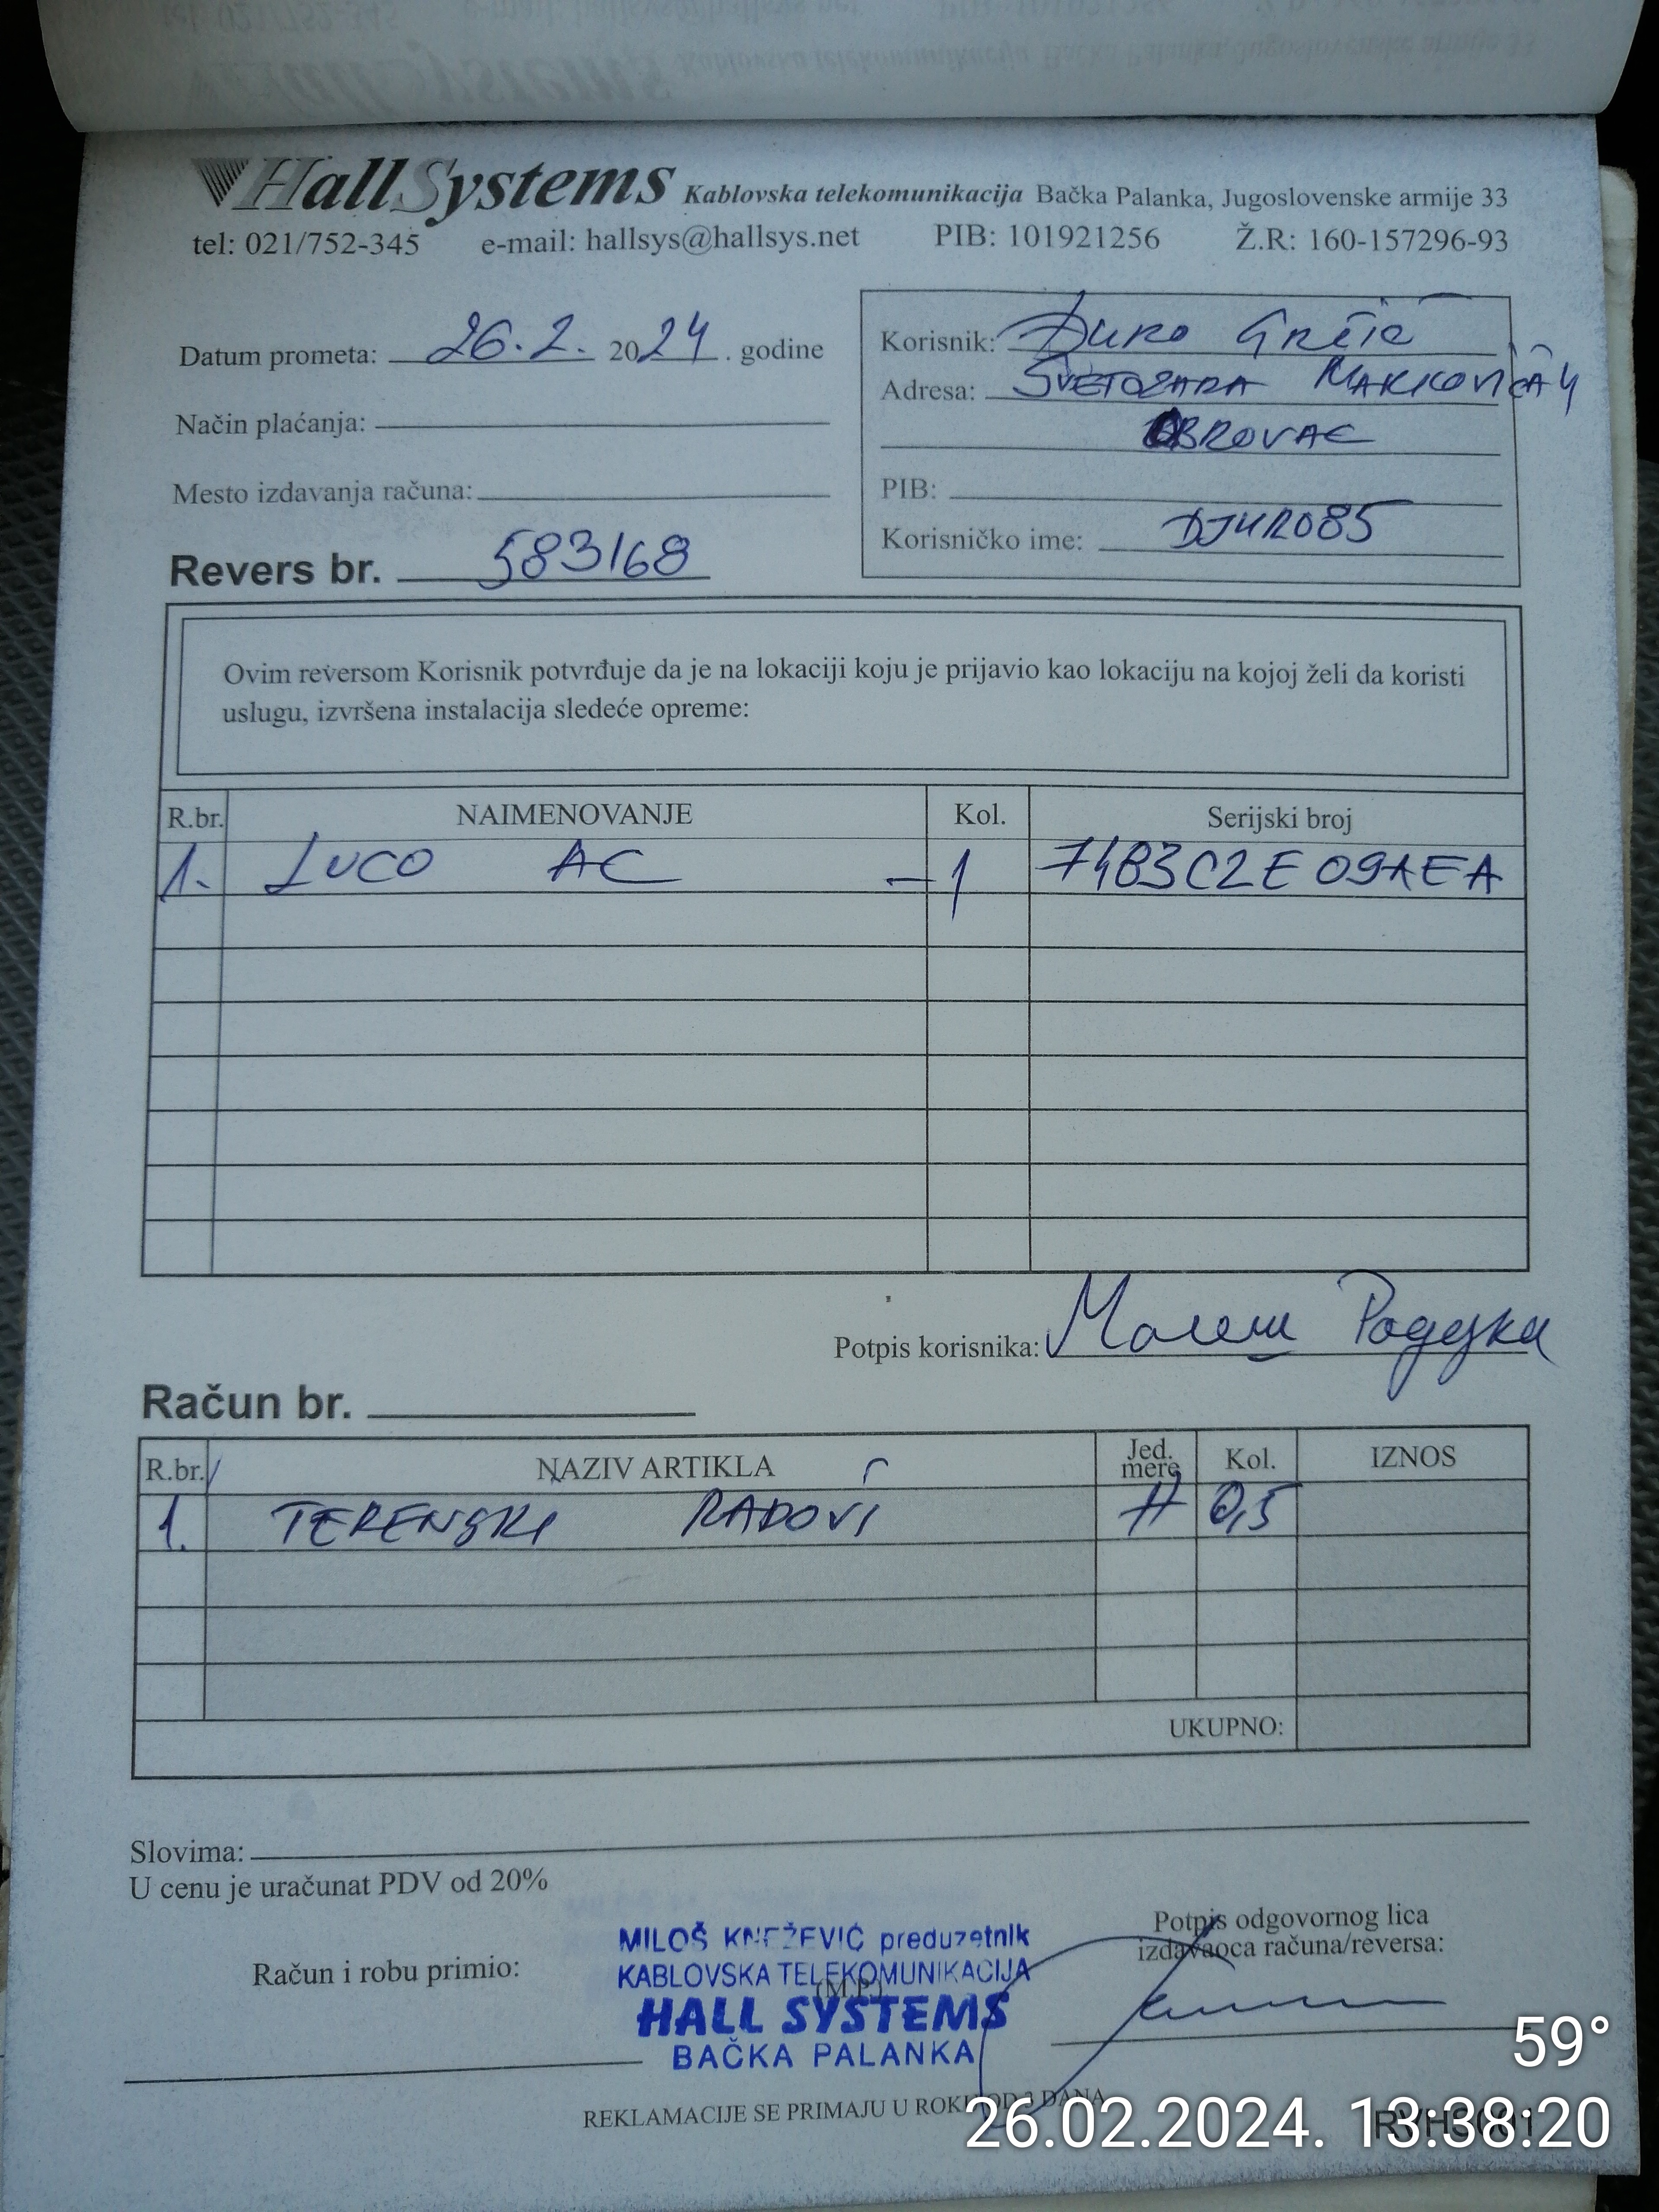 HallSystems Kablovska telekomunikacija Bačka Palanka, Jugoslovenske armije 33
tel: 021/752-345 e-mail: hallsys@hallsys.net PIB: 101921256 Ž.R: 160-157296-93
Datum prometa: 26.2. 2024. godine
Način plaćanja:
Mesto izdavanja računa:
Revers br. 583168
Korisnik: ĐURO
Adresa: SVETOZARA MARKOVIĆA 4
OBROVAC
PIB:
Korisničko ime: DJUR085
Ovim reversom Korisnik potvrđuje da je na lokaciji koju je prijavio kao lokaciju na kojoj želi da koristi
uslugu, izvršena instalacija sledeće opreme:
R.br. NAIMENOVANJE Kol. Serijski broj
1. LUCO AC – 1 7483C2E09AEA
Potpis korisnika: Малеш Радојка
Račun br.
R.br. NAZIV ARTIKLA Jed. mere Kol. IZNOS
1. TERENSKI RADOVI H 0,5
UKUPNO:
Slovima:
U cenu je uračunat PDV od 20%
Račun i robu primio:
MILOŠ KNEŽEVIĆ preduzetnik
KABLOVSKA TELEKOMUNIKACIJA
(M.P.)
HALL SYSTEMS
BAČKA PALANKA
Potpis odgovornog lica
izdavaoca računa/reversa:
REKLAMACIJE SE PRIMAJU U ROKU OD 3 DANA
59°
26.02.2024. 13:38:20